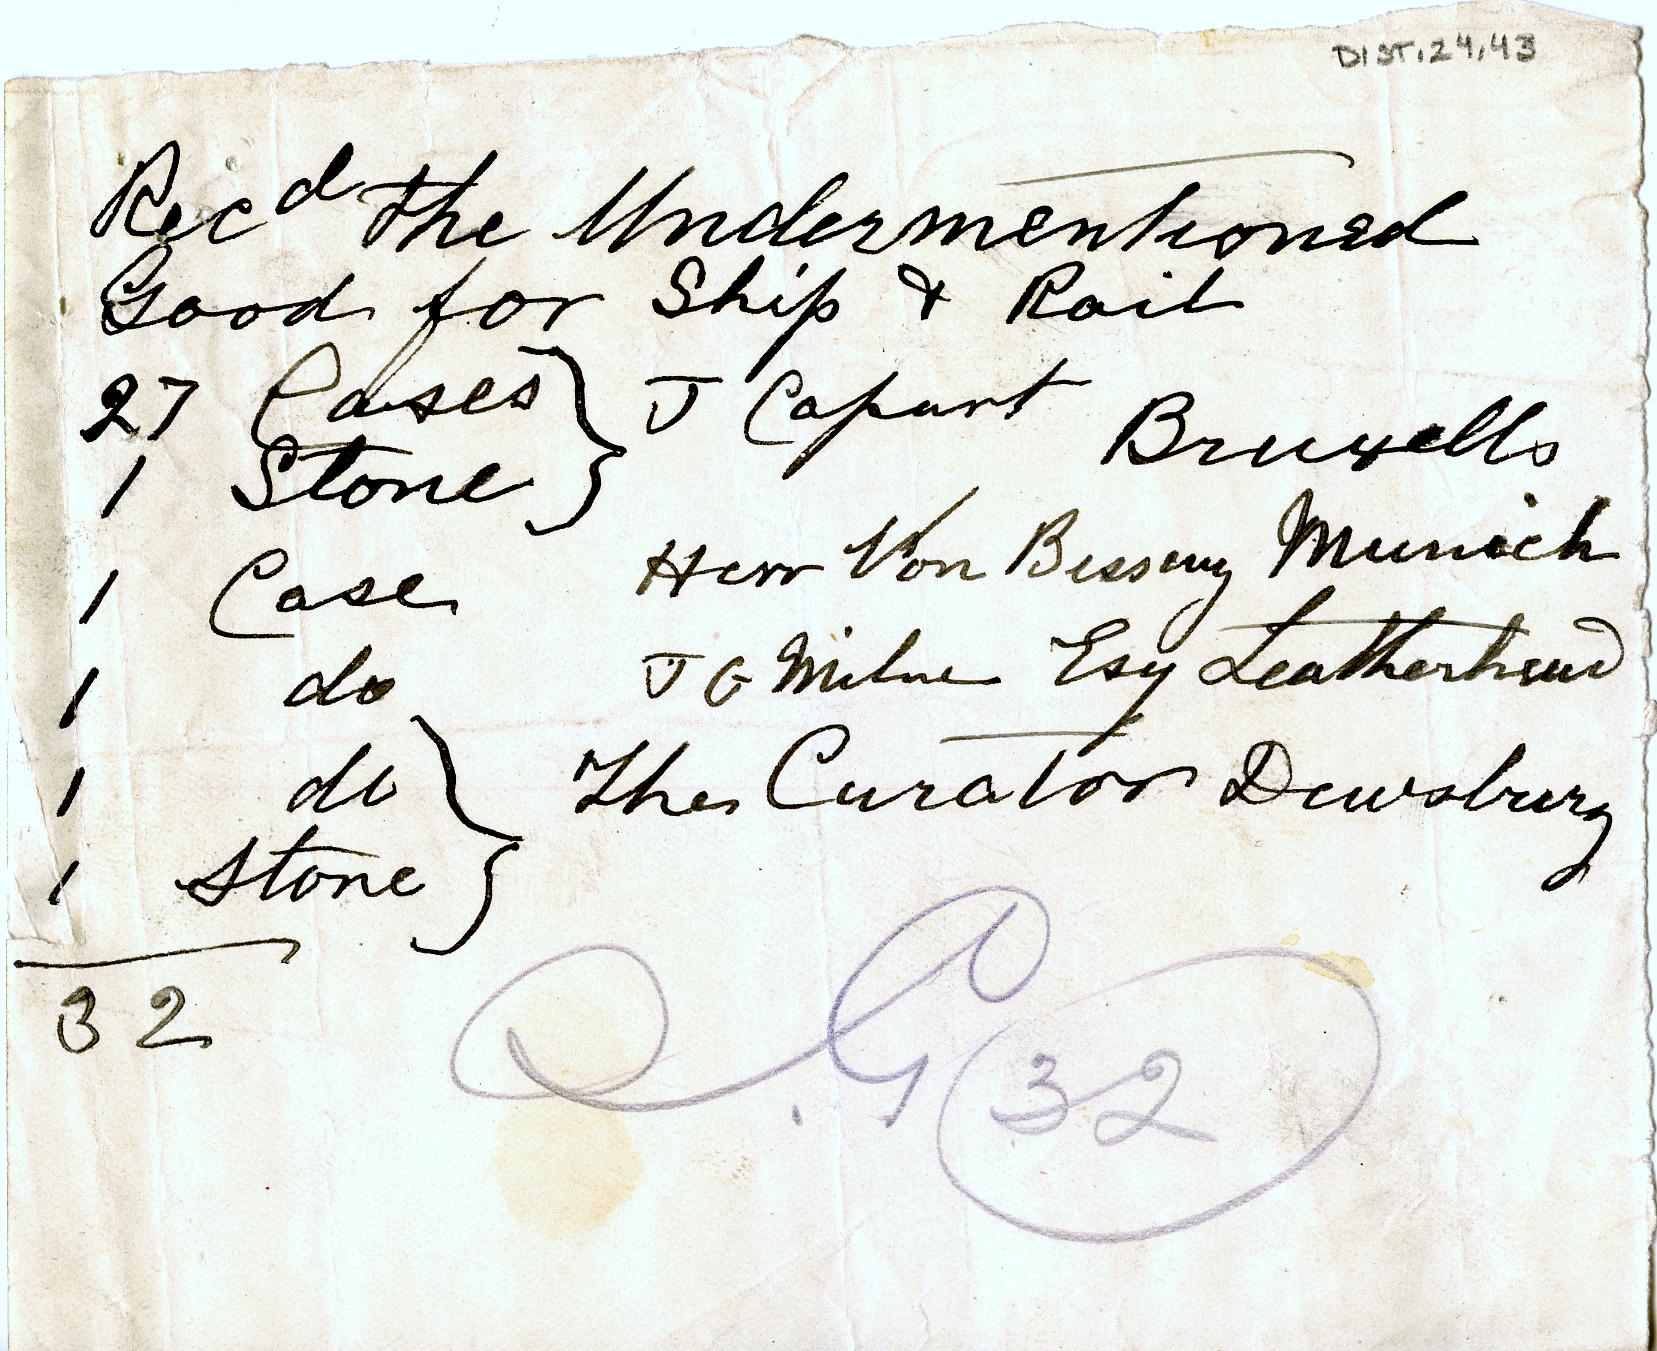 DIST.24.43
Recd the Undermentioned
Good for Ship & Rail
27 Cases } J Capart Bruxells
1 Stone }
1 Case Herr Von Bissing Munich
1 do J G Milne Esq Leatherhead
1 do } The Curator Dewsbury
1 Stone }
32
32